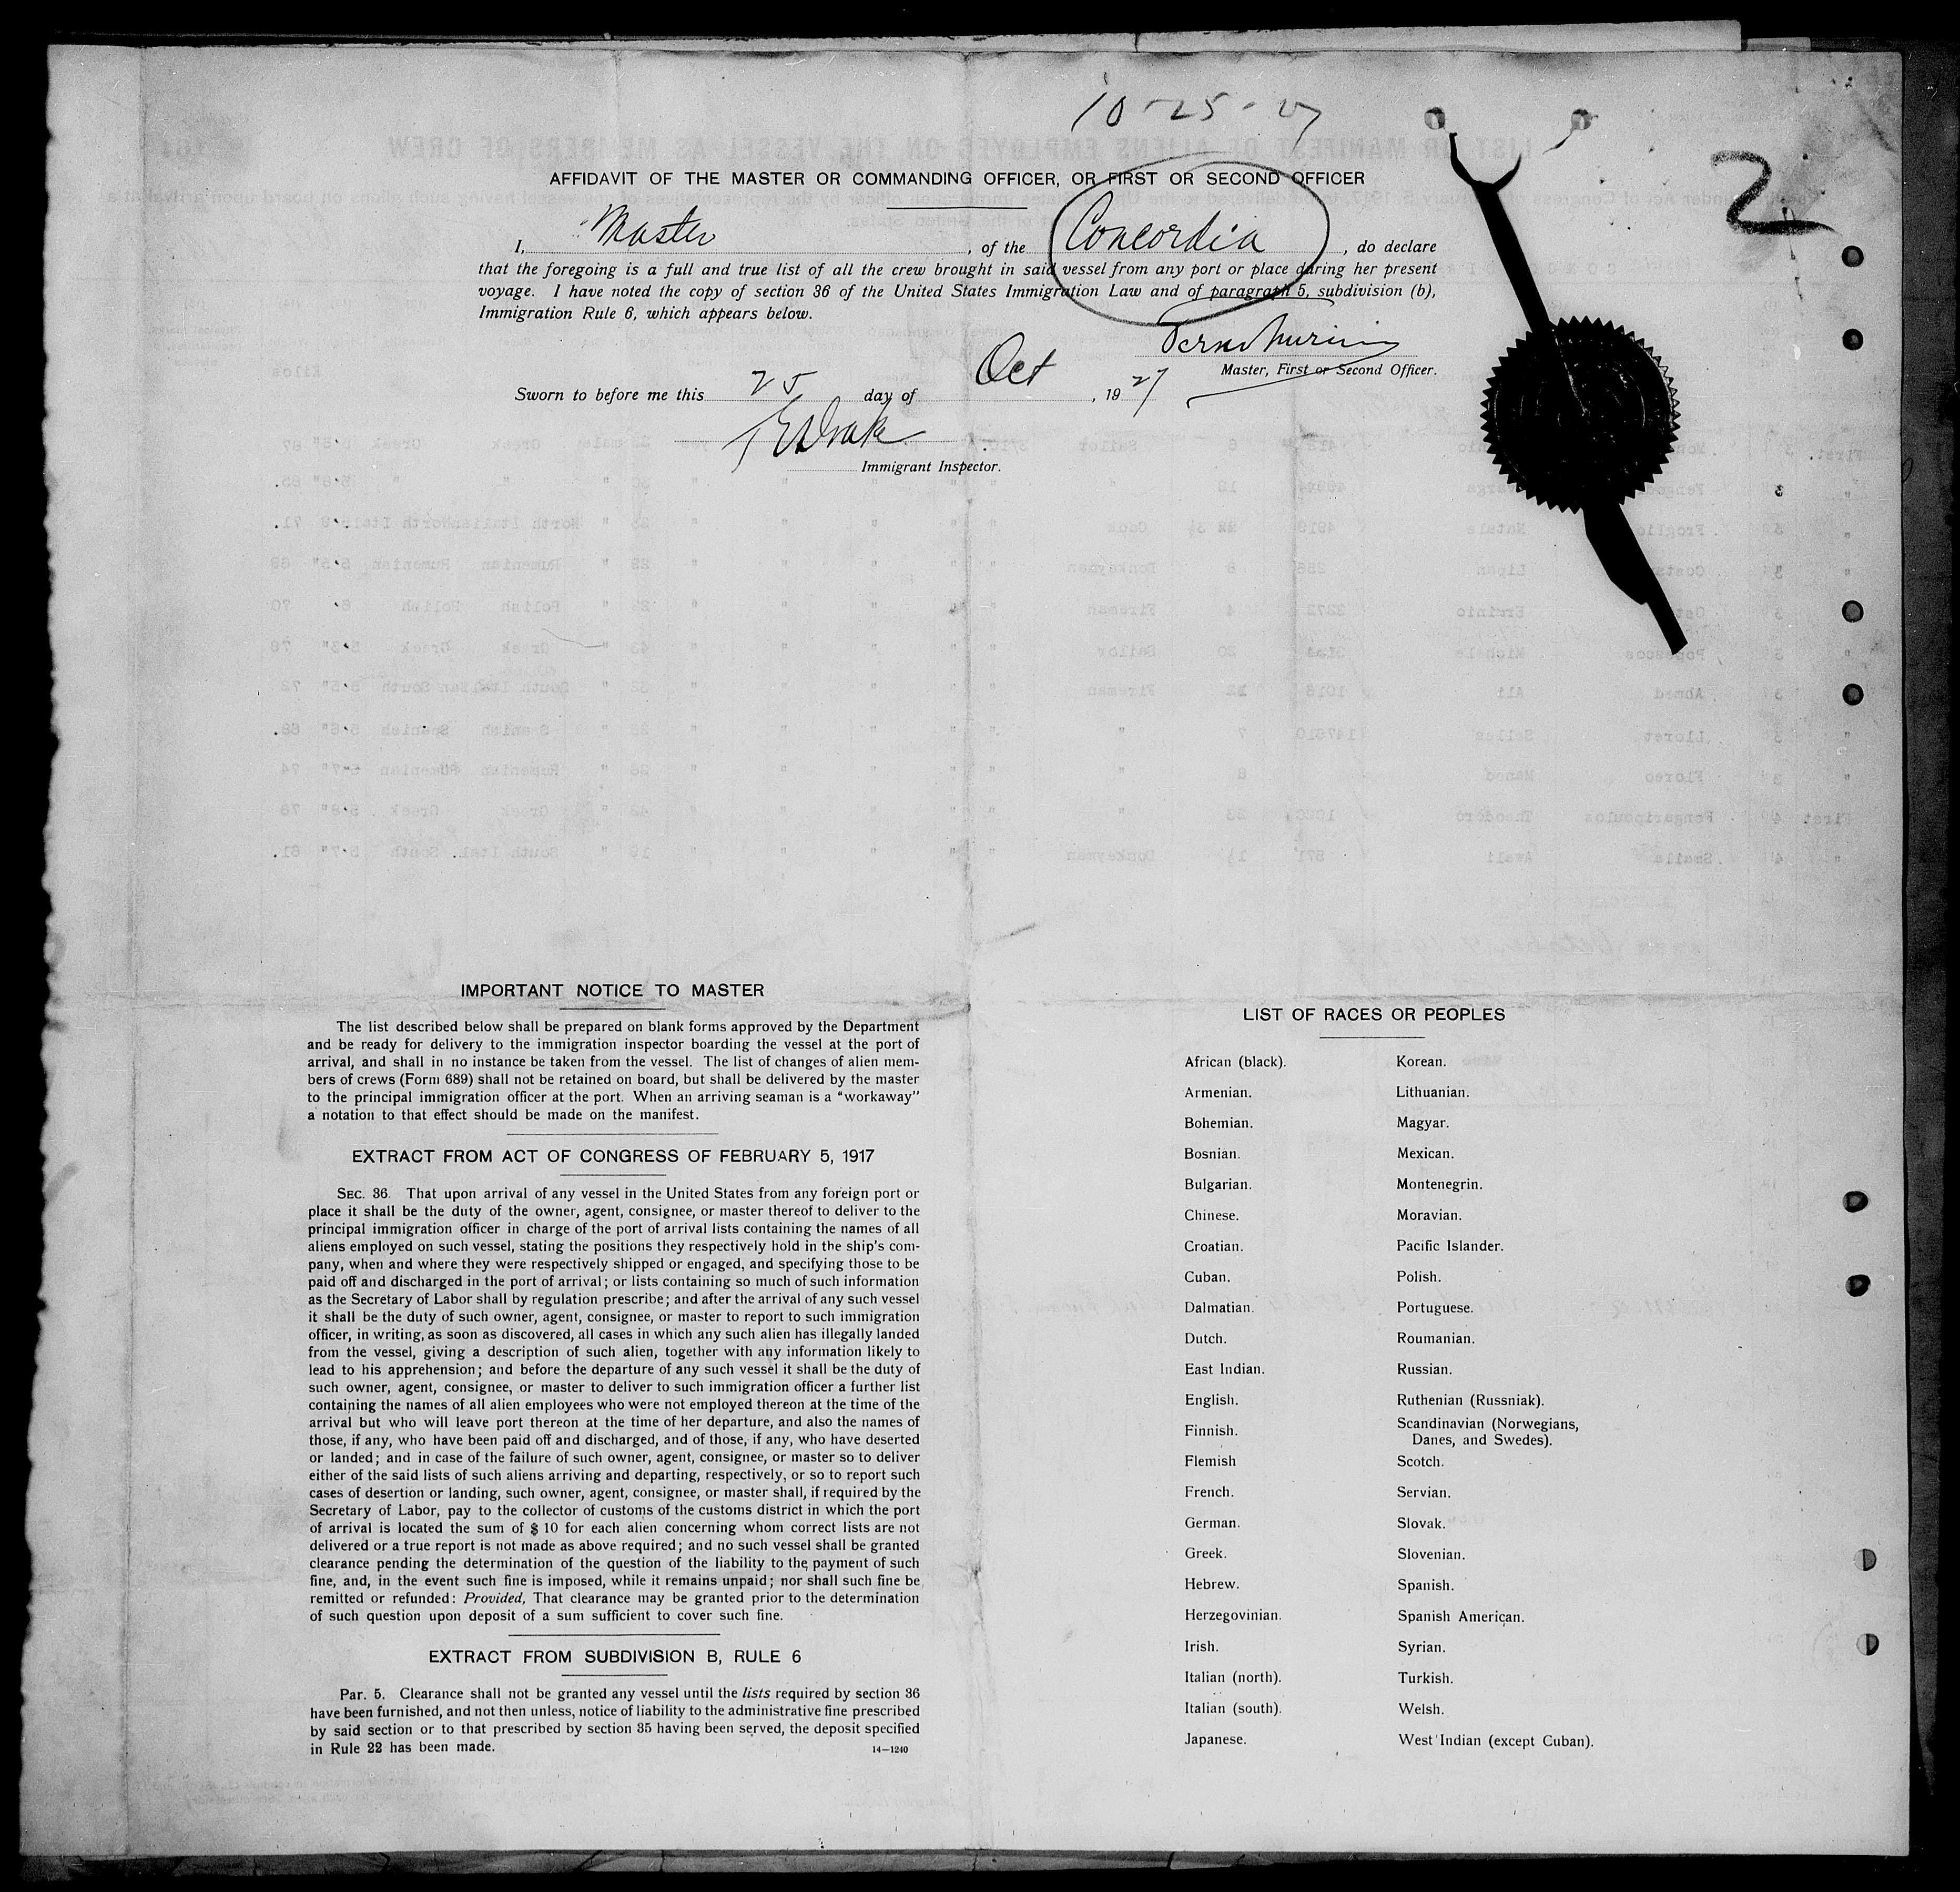 10-25-27
2
AFFIDAVIT OF THE MASTER OR COMMANDING OFFICER, OR FIRST OR SECOND OFFICER
I, Master, of the Concordia, do declare
that the foregoing is a full and true list of all the crew brought in said vessel from any port or place during her present
voyage. I have noted the copy of section 36 of the United States Immigration Law and of paragraph 5, subdivision (b),
Immigration Rule 6, which appears below.
Master, First or Second Officer.
Sworn to before me this 25 day of Oct, 1927
Immigrant Inspector.
IMPORTANT NOTICE TO MASTER
The list described below shall be prepared on blank forms approved by the Department
and be ready for delivery to the immigration inspector boarding the vessel at the port of
arrival, and shall in no instance be taken from the vessel. The list of changes of alien mem-
bers of crews (Form 689) shall not be retained on board, but shall be delivered by the master
to the principal immigration officer at the port. When an arriving seaman is a "workaway"
a notation to that effect should be made on the manifest.
EXTRACT FROM ACT OF CONGRESS OF FEBRUARY 5, 1917
SEC. 36. That upon arrival of any vessel in the United States from any foreign port or
place it shall be the duty of the owner, agent, consignee, or master thereof to deliver to the
principal immigration officer in charge of the port of arrival lists containing the names of all
aliens employed on such vessel, stating the positions they respectively hold in the ship's com-
pany, when and where they were respectively shipped or engaged, and specifying those to be
paid off and discharged in the port of arrival; or lists containing so much of such information
as the Secretary of Labor shall by regulation prescribe; and after the arrival of any such vessel
it shall be the duty of such owner, agent, consignee, or master to report to such immigration
officer, in writing, as soon as discovered, all cases in which any such alien has illegally landed
from the vessel, giving a description of such alien, together with any information likely to
lead to his apprehension; and before the departure of any such vessel it shall be the duty of
such owner, agent, consignee, or master to deliver to such immigration officer a further list
containing the names of all alien employees who were not employed thereon at the time of the
arrival but who will leave port thereon at the time of her departure, and also the names of
those, if any, who have been paid off and discharged, and of those, if any, who have deserted
or landed; and in case of the failure of such owner, agent, consignee, or master so to deliver
either of the said lists of such aliens arriving and departing, respectively, or so to report such
cases of desertion or landing, such owner, agent, consignee, or master shall, if required by the
Secretary of Labor, pay to the collector of customs of the customs district in which the port
of arrival is located the sum of $ 10 for each alien concerning whom correct lists are not
delivered or a true report is not made as above required; and no such vessel shall be granted
clearance pending the determination of the question of the liability to the payment of such
fine, and, in the event such fine is imposed, while it remains unpaid; nor shall such fine be
remitted or refunded: Provided, That clearance may be granted prior to the determination
of such question upon deposit of a sum sufficient to cover such fine.
EXTRACT FROM SUBDIVISION B, RULE 6
Par. 5. Clearance shall not be granted any vessel until the lists required by section 36
have been furnished, and not then unless, notice of liability to the administrative fine prescribed
by said section or to that prescribed by section 35 having been served, the deposit specified
in Rule 22 has been made.
14—1240
LIST OF RACES OR PEOPLES
African (black).
Armenian.
Bohemian.
Bosnian.
Bulgarian.
Chinese.
Croatian.
Cuban.
Dalmatian.
Dutch.
East Indian.
English.
Finnish.
Flemish
French.
German.
Greek.
Hebrew.
Herzegovinian.
Irish.
Italian (north).
Italian (south).
Japanese.
Korean.
Lithuanian.
Magyar.
Mexican.
Montenegrin.
Moravian.
Pacific Islander.
Polish.
Portuguese.
Roumanian.
Russian.
Ruthenian (Russniak).
Scandinavian (Norwegians,
Danes, and Swedes).
Scotch.
Servian.
Slovak.
Slovenian.
Spanish.
Spanish American.
Syrian.
Turkish.
Welsh.
West Indian (except Cuban).